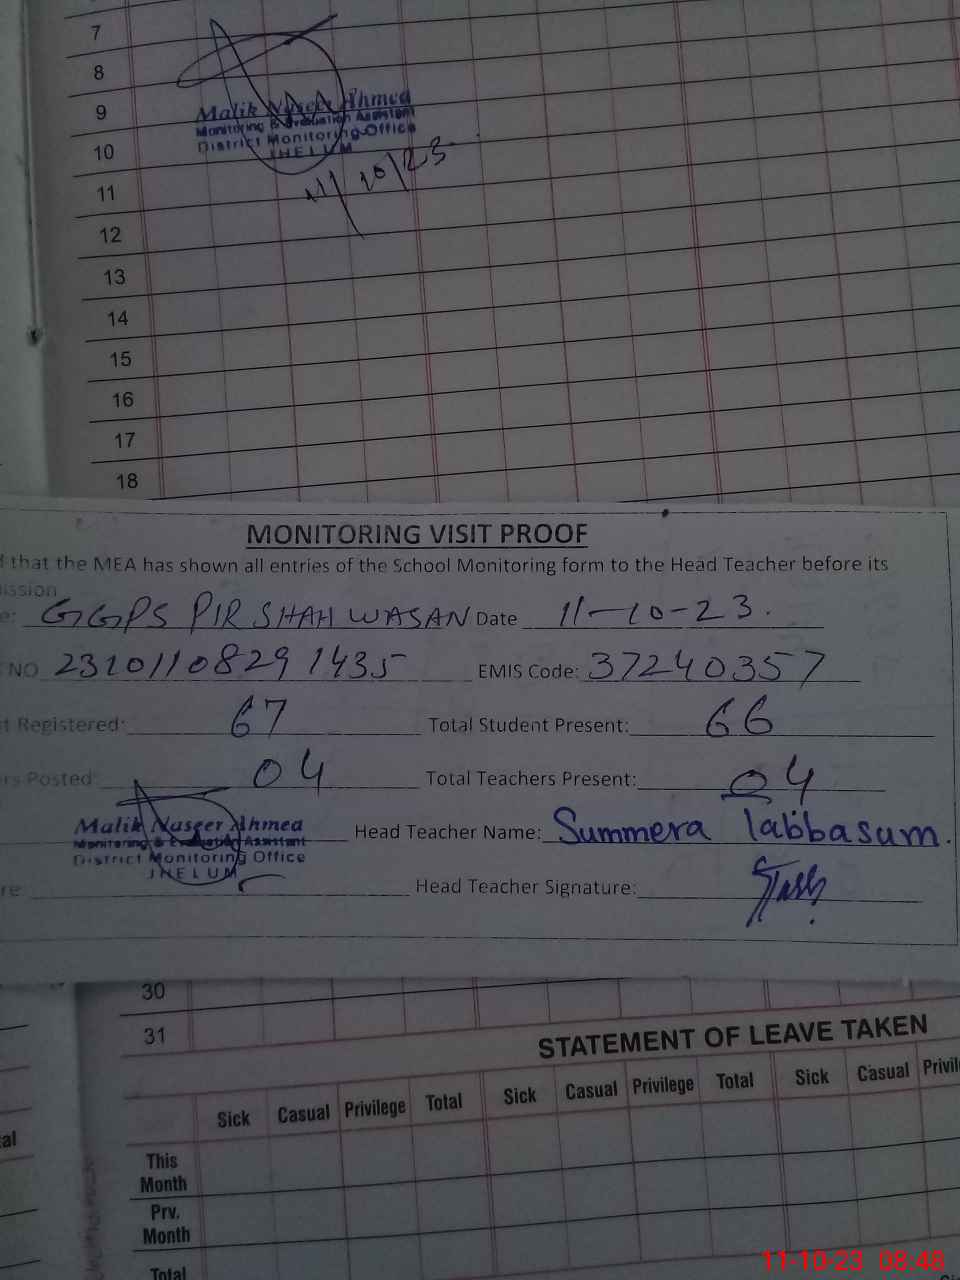 7
8
9
10
11
12
13
14
15
16
17
18
Malik Naseer Ahmed
Monitoring & Evaluation Assistant
District Monitoring Office
JHELUM
11/10/23
MONITORING VISIT PROOF
that the MEA has shown all entries of the School Monitoring form to the Head Teacher before its
ission
e: GGPS PIR SHAH WASAN Date 11-10-23.
NO 23101108291435 EMIS Code: 37240357
t Registered: 67 Total Student Present: 66
rs Posted: 04 Total Teachers Present: 04
Malik Naseer Ahmed
Monitoring & Evaluation Assistant
District Monitoring Office
JHELUM
Head Teacher Name: Summera Tabbasum.
re: Head Teacher Signature:
30
31
STATEMENT OF LEAVE TAKEN
Sick Casual Privilege Total Sick Casual Privilege Total Sick Casual Privil
tal
This
Month
Prv.
Month
Total
11-10-23 08:48